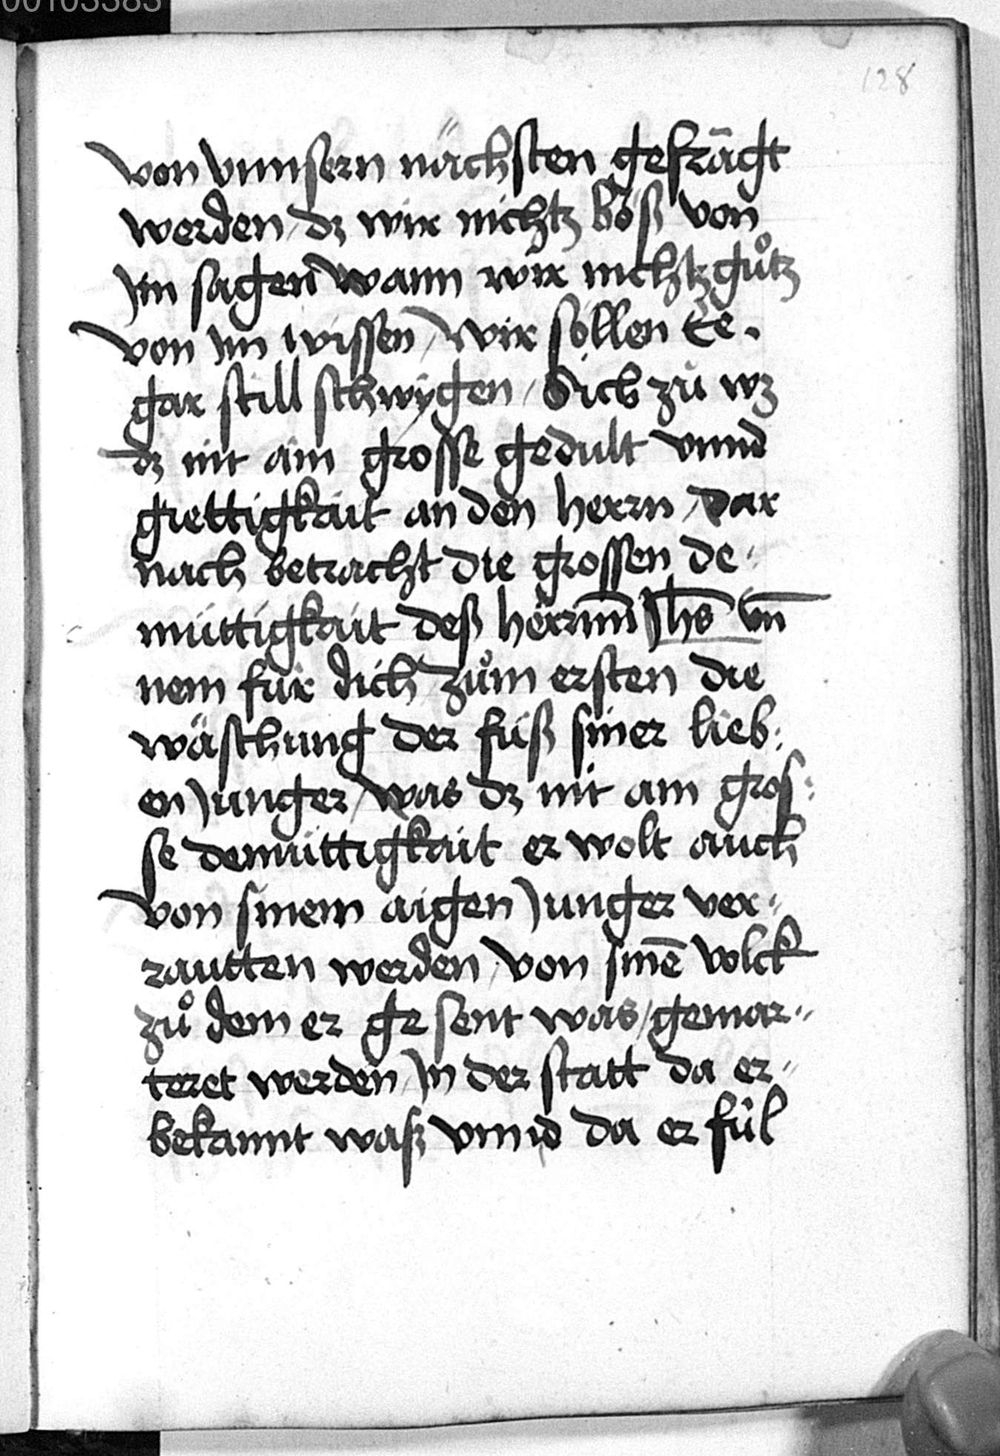 00103383
128
von vnnsern nächsten gefrāgt
werden / dz wir nichtz böß von
jm sagen wann wir nichtz gůtz
von jm wissen / wir sollen Ee.
gar still schwÿgen / Sich zů wz
dz nit ain grosse gedult vnnd
giettigkait an den herrn / dar
nach betracht die grossen de-
mùttigkait deß herrnn Jhs vn̄
nem fùr dich / zům ersten die
wäschung der fùß siner lieb-
en Junger / was dz nit am gros-
se demùttigkait er wolt auch
von sinem aigen Junger ver-
rautten werden / von sinē volck
zů dem er ge sent was / gemar-
teret werden / Jn der statt da er-
bekannt waß vnnd da er fùl